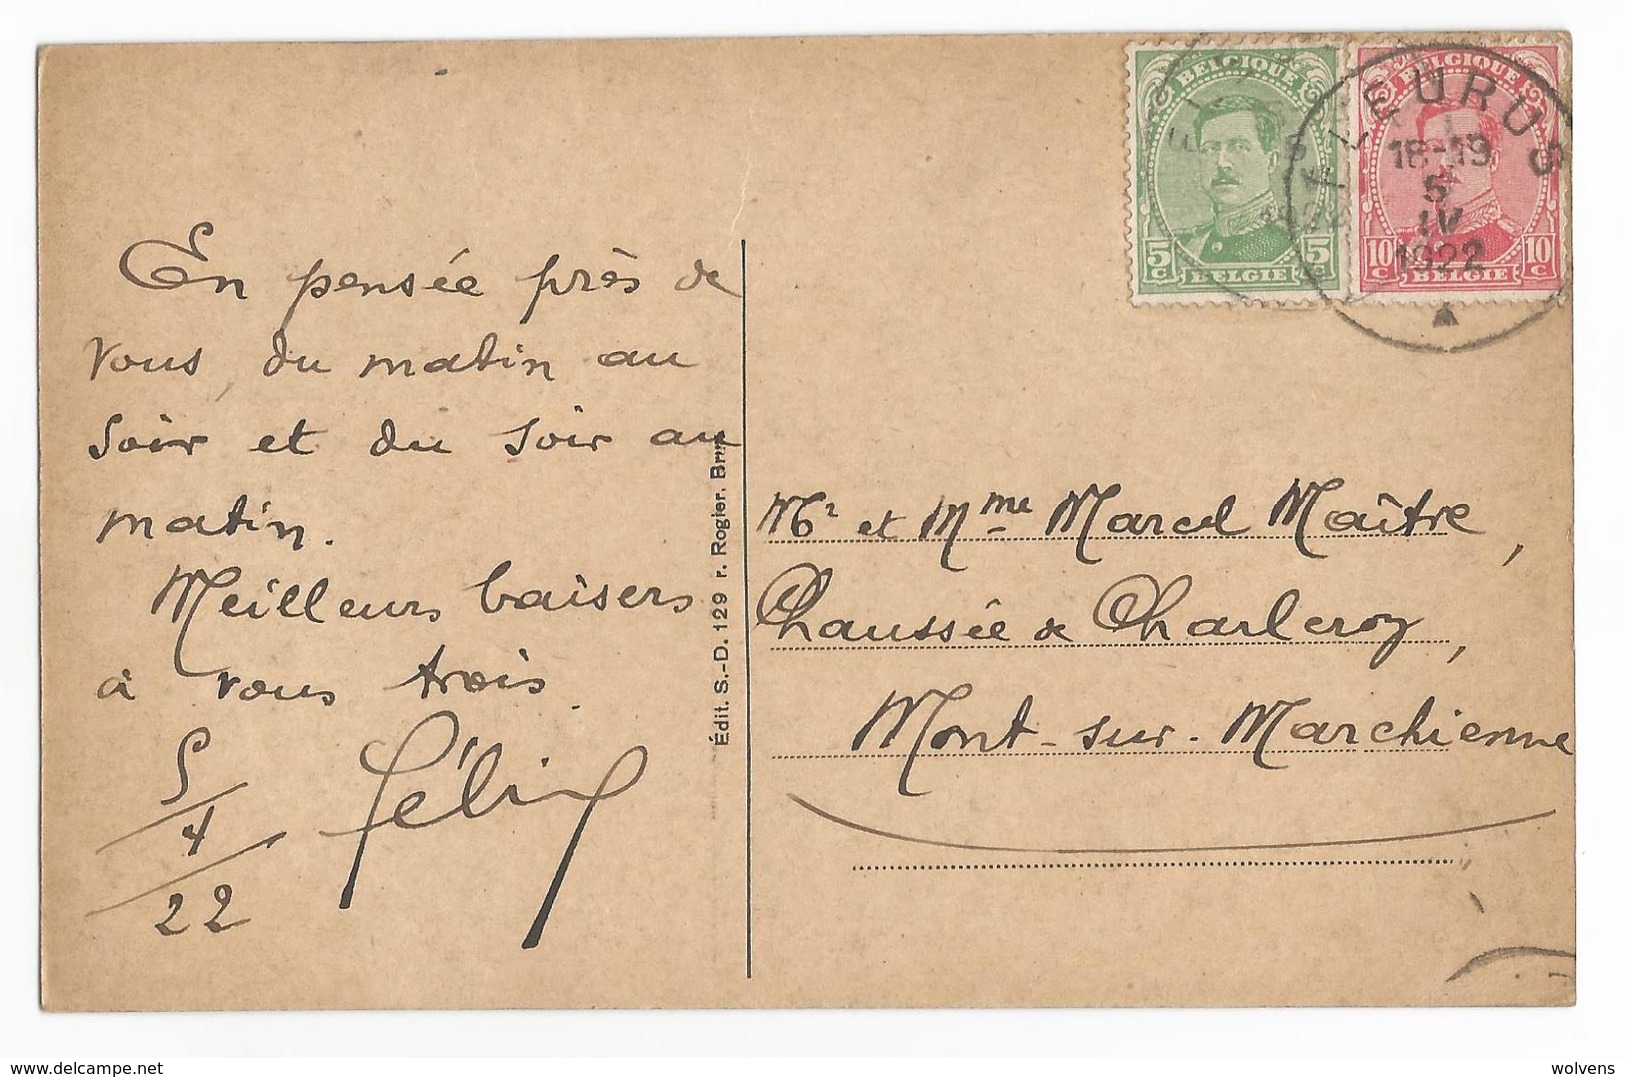 En pensée près de
vous, du matin au
soir et du soir au
matin.
Meilleurs baisers
à vous trois.
5/4/22
Félix
Édit. S.-D. 129 r. Rogier. Brux
BELGIQUE
5c 5c
BELGIE
BELGIQUE
10c 10c
BELGIE
FLEURUS
18-19
5
IV
1922
Mr et Mme Marcel Maître,
Chaussée de Charleroy,
Mont-sur-Marchienne
wolvens